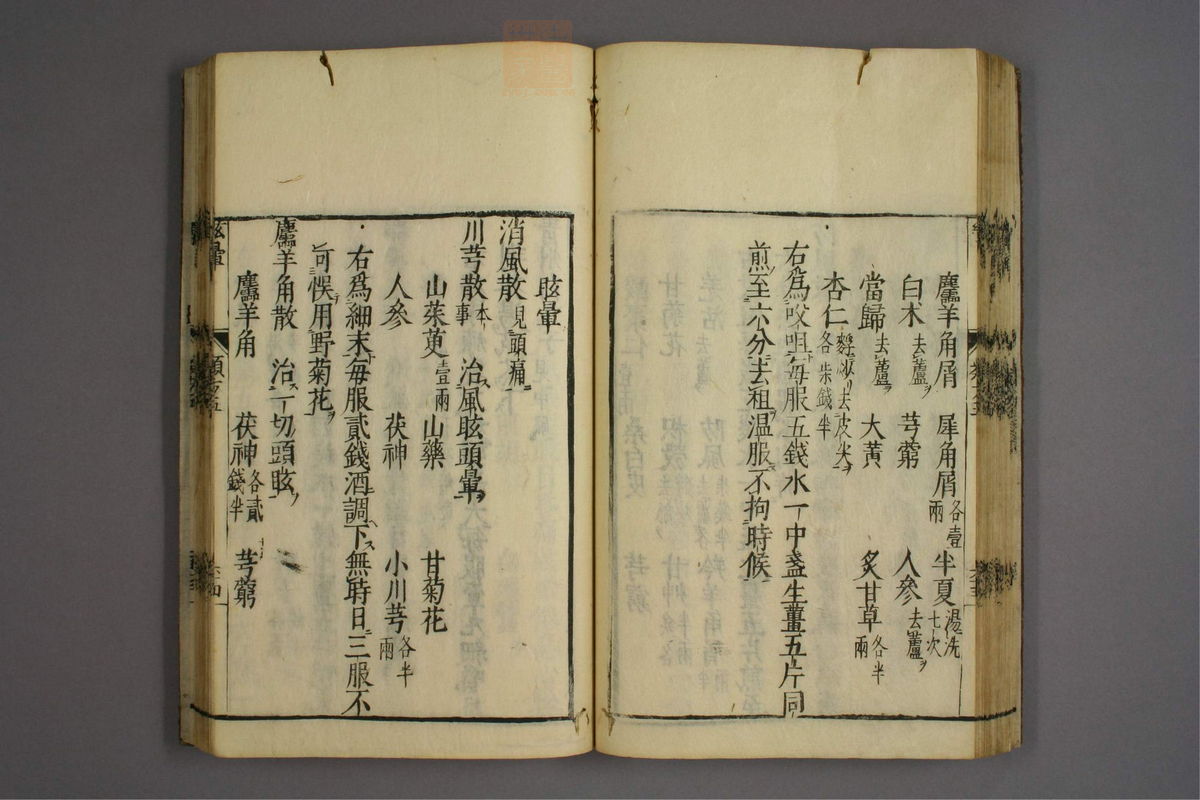 麢羊角屑 犀角屑各壹兩 半夏湯洗七次
白朮去蘆 芎藭 人參去蘆ヲ
當歸去蘆ヲ 大黃 炙甘草各半兩
杏仁麩炒リ去皮尖ヲ各柒錢半
右爲㕮咀每服五錢水一中盞生薑五片同
煎至六分去柤溫服不拘時候
眩暈
消風散見頭痛
川芎散本事 治風眩頭暈
山茱萸壹兩 山藥 甘菊花
人參 茯神 小川芎各半兩
右爲細末每服貳錢酒調下無時日三服不
可悞用野菊花
麢羊角散 治一切頭眩
麢羊角 茯神各貳錢半 芎藭
眩暈